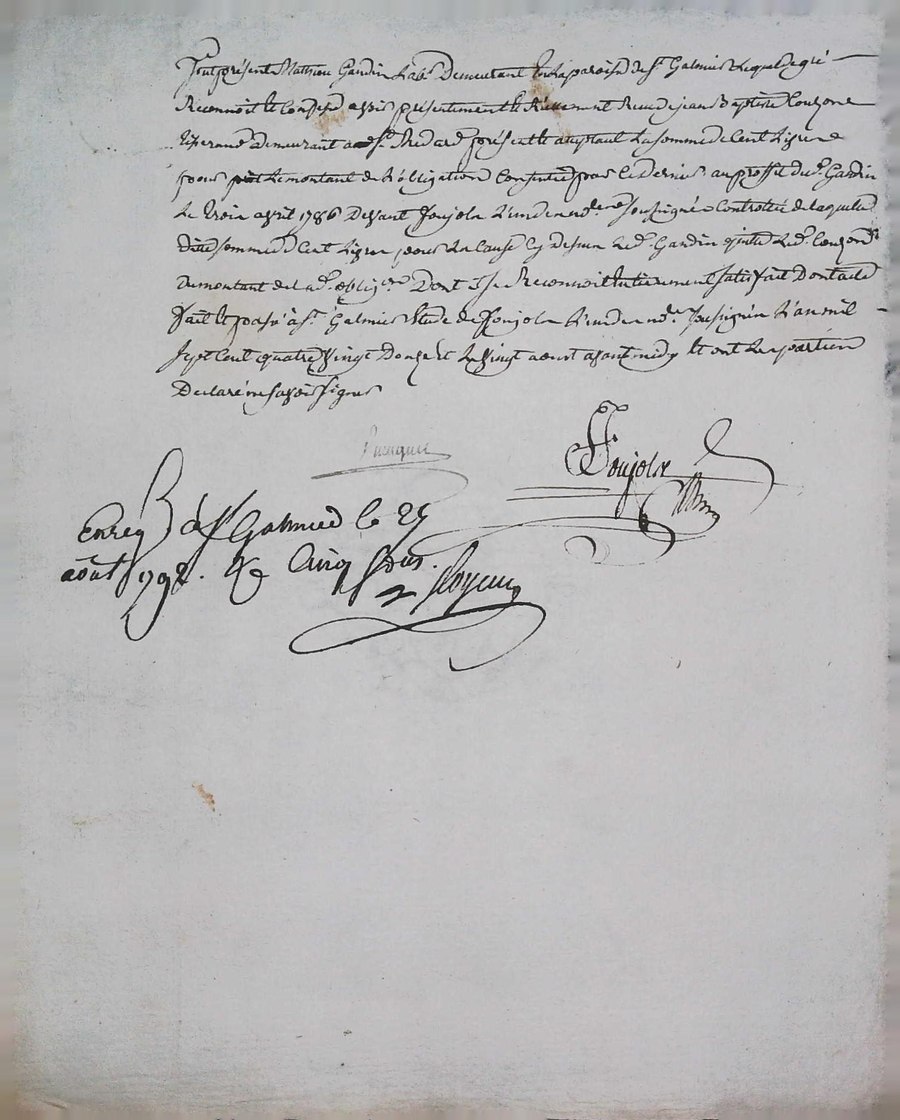 fut présent Mathieu Gardin lab.r demeurant en la paroisse de St Galmier lequel de gré
Reconnoit et confesse avoir présentement et Réellement Receu de jean Baptiste Couzon
demeurant a St Medard présent et acceptant la somme de Cent Livres
pour le montant de l'obligation Consentie par ce dernier au proffit dud. Gardin
Le trois avril 1786 devant Ponjola L'un de nd. nres soussignés Controllée de laquelle
ditte somme de Cent Livres pour la Cause Cy dessus led. Gardin quitte led. Couzon
du montant de lad. oblig.on Dont il se Reconnoit Entierement satisfait Dont acte
fait et passé à St Galmier Etude de Ponjola L'un de nd. nres soussignés L'an mil
sept Cent quatre vingt Douze et le vingt aoust avant midy Et ont les parties
Declaré ne savoir signer
Ponjola
Enreg. à St Galmier le 25
août 1792. R Cinq sous.